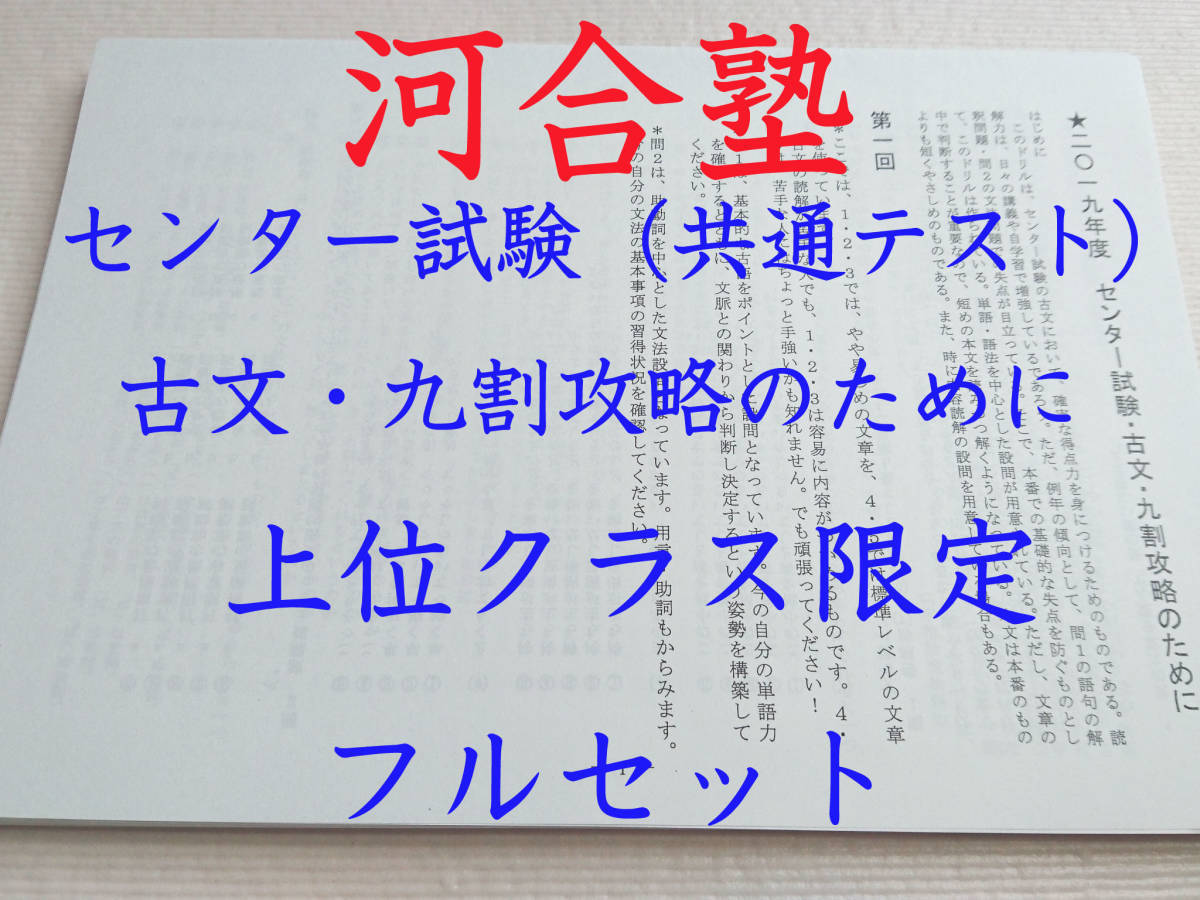 河合塾
センター試験（共通テスト）
古文・九割攻略のために
上位クラス限定
フルセット
★二〇一九年度 センター試験・古文・九割攻略のために
はじめに
このドリルは、センター試験の古文において、確実な得点力を身につけるためのものである。読
解力は、日々の講義や自学習で増強しているであろう。ただ、例年の傾向として、問1の語句の解
釈問題・問2の文法問題で失点が目立っている。そこで、本番での基礎的な失点を防ぐものとし
て、このドリルは作られている。単語・語法を中心とした設問が用意されている。ただし、文章の
中で判断することが重要なので、短めの本文を読みつつ解くようになっている。本文は本番のもの
よりも短くやさしめのものである。また、時に内容読解の設問を用意している場合もある。
第一回
*ここでは、1・2・3では、やや易しめの文章を、4・5では標準レベルの文章
を使っています。
古文の読解が苦手な人でも、1・2・3は容易に内容がわかるものです。4・
苦手な人にはちょっと手強いかも知れません。でも頑張ってください！
1は、基本的な古語をポイントとした設問となっています。今の自分の単語力
を確認するとともに、文脈との関わりから判断し決定するという姿勢を構築して
ください。
*問2は、助動詞を中心とした文法設問となっています。用言・助詞もからみます。
今の自分の文法の基本事項の習得状況を確認してください。